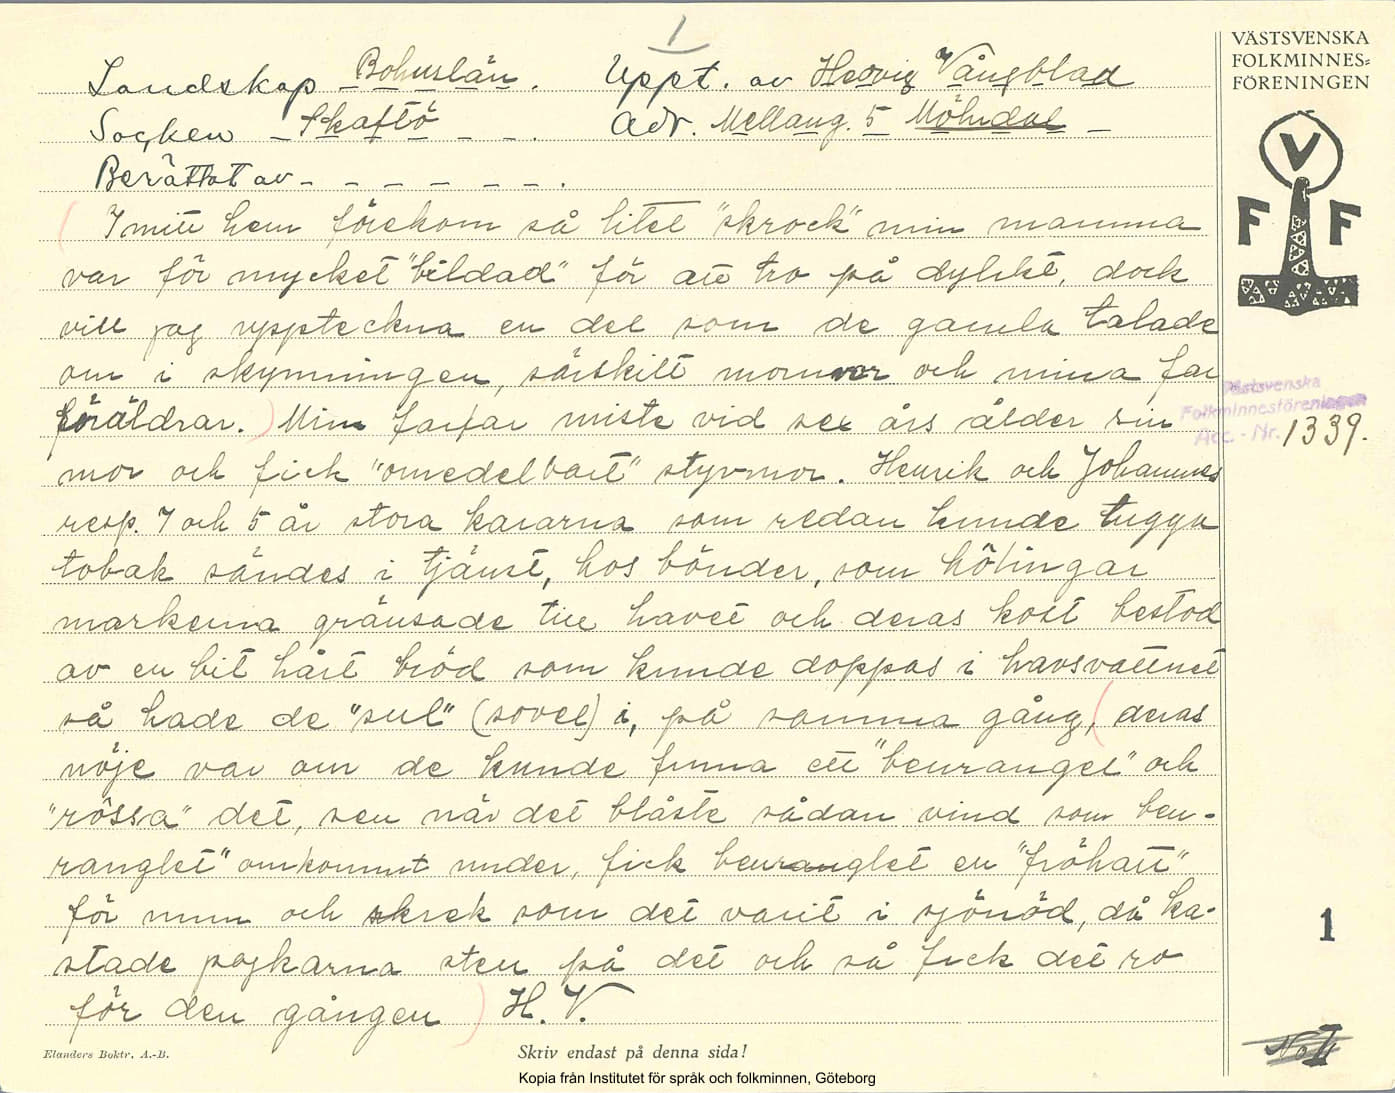 1
VÄSTSVENSKA
FOLKMINNES=
FÖRENINGEN
V
F F
Landskap Bohuslän. Uppt. av Hedvig Vångblad
Socken Skaftö Adr. Mellang. 5 Mölndal
Berättat av
I mitt hem förekom så litet "skrock" min mamma
var för mycket "bildad" för att tro på dylikt, dock
vill jag uppteckna en del som de gamla talade
om i skymningen, särskilt mormor och mina far
föräldrar.) Min farfar miste vid sex års ålder sin
mor och fick "omedelbart" styvmor. Henrik och Johannes
resp. 7 och 5 år stora kararna som redan kunde tugga
tobak sändes i tjänst, hos bönder, som hölingar
markerna gränsade till havet och deras kost bestod
av en bit hårt bröd som kunde doppas i havsvattnet
så hade de "sul" (sovel) i, på samma gång, (deras
nöje var om de kunde finna ett "benrangel" och
"rössa" det, sen när det blåste sådan vind som ben-
ranglet" omkommit under, fick benranglet en "fröhatt"
för mun och skrek som det varit i sjönöd, då ka-
stade pojkarna sten på det och så fick det ro
för den gången) H. V.
Västsvenska
Folkminnesföreningen
Acc. - Nr. 1339.
1
No 1
Elanders Boktr. A.-B.
Skriv endast på denna sida!
Kopia från Institutet för språk och folkminnen, Göteborg